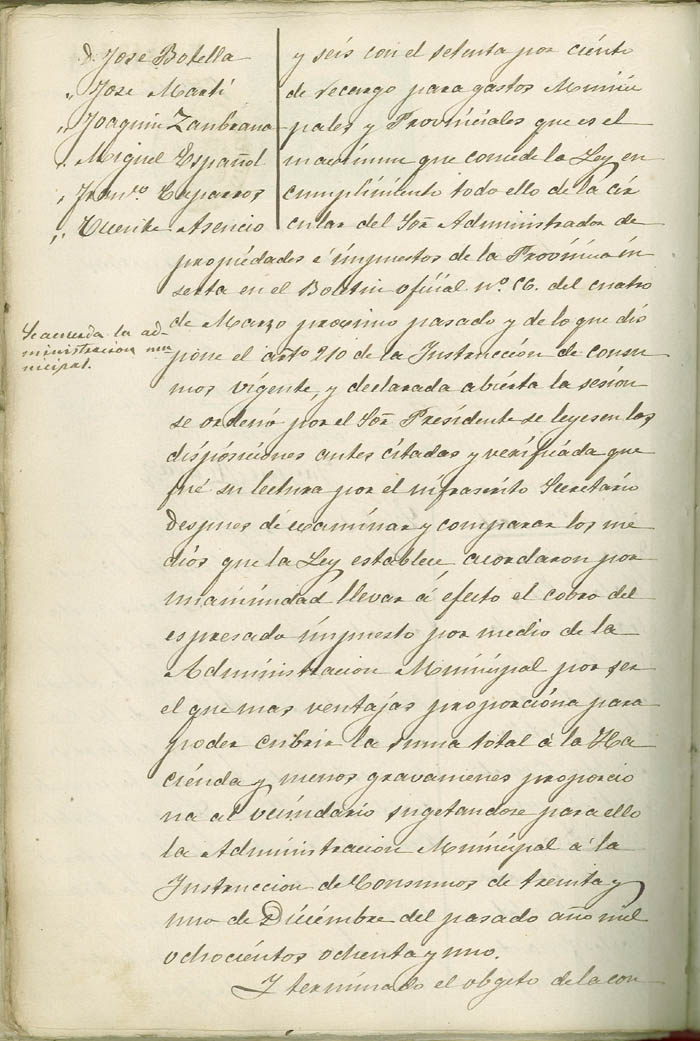 D. Jose Botella
" Jose Marti
" Joaquin Zanbrana
" Miguel Español
" Franco. Caparros
" Vicente Asencio
y seis con el setenta por ciento
de recargo para gastos Munici
pales y Provinciales que es el
maximun que concede la Ley en
cumplimiento todo ello de la cir
cular del Sor. Administrador de
propiedades é impuestos de la Provincia in
serta en el Boletin oficial nº 56. del cuatro
de Marzo proximo pasado y de lo que dis
pone el arto. 210 de la Instrucción de consu
mos vigente, y declarada abierta la sesión
se ordenó por el Sor. Presidente se leyesen las
disposiciones antes citadas y verificada que
fué su lectura por el infrascrito Secretario
despues de examinar y comparar los me
dios que la Ley establece acordaron por
unanimidad llevar á efecto el cobro del
espresado impuesto por medio de la
Administracion Municipal por ser
el que mas ventajas proporciona para
poder cubrir la suma total á la Ha
cienda y menos gravamenes proporcio
na al vecindario sugetandose para ello
la Administracion Municipal á la
Instruccion de Consumos de treinta y
uno de Diciembre del pasado año mil
ochocientos ochenta y uno.
Y terminado el obgeto de la con
Se acuerda la ad-
ministracion mu
nicipal.